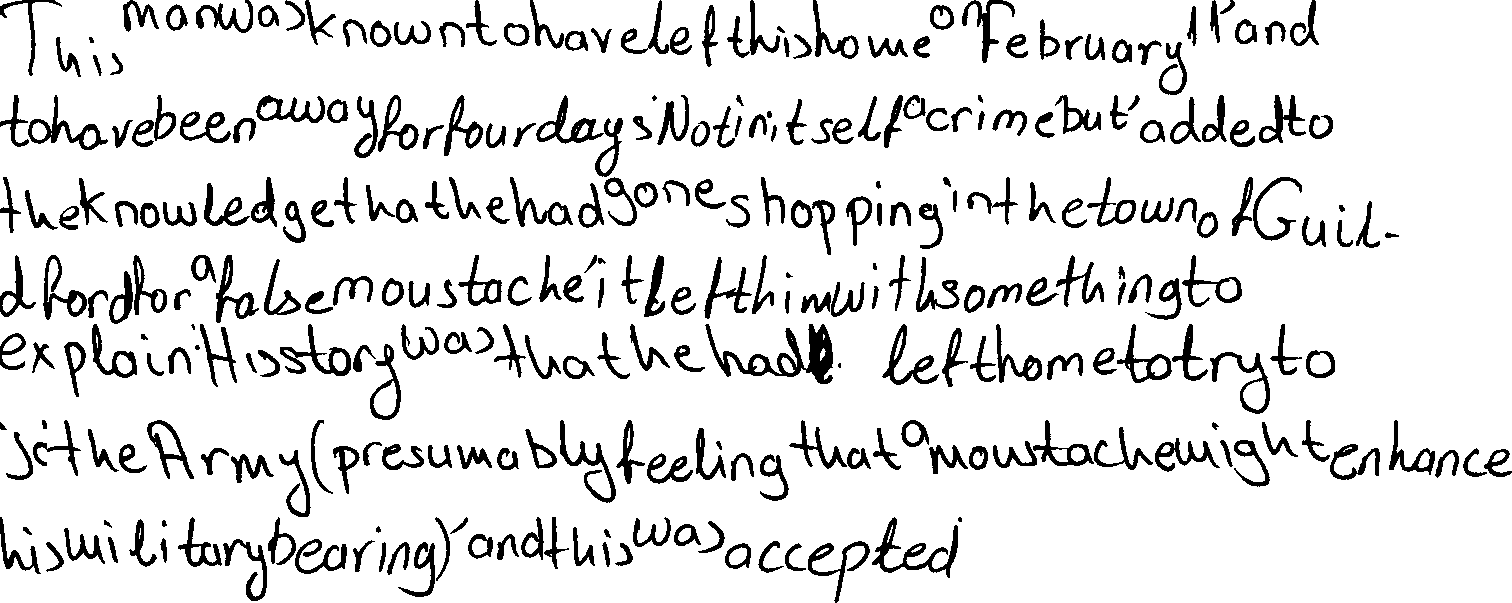 This man was known to have left his home on February 11' and
to have been away for four days. Not in itself a crime but' added to
the knowledge that he had gone shopping in the town of Guil-
dford for a false moustache' it left him with something to
explain. His story was that he had left home to try to
the Army (presumably feeling that a moustache might enhance
his military bearing)' and this was accepted